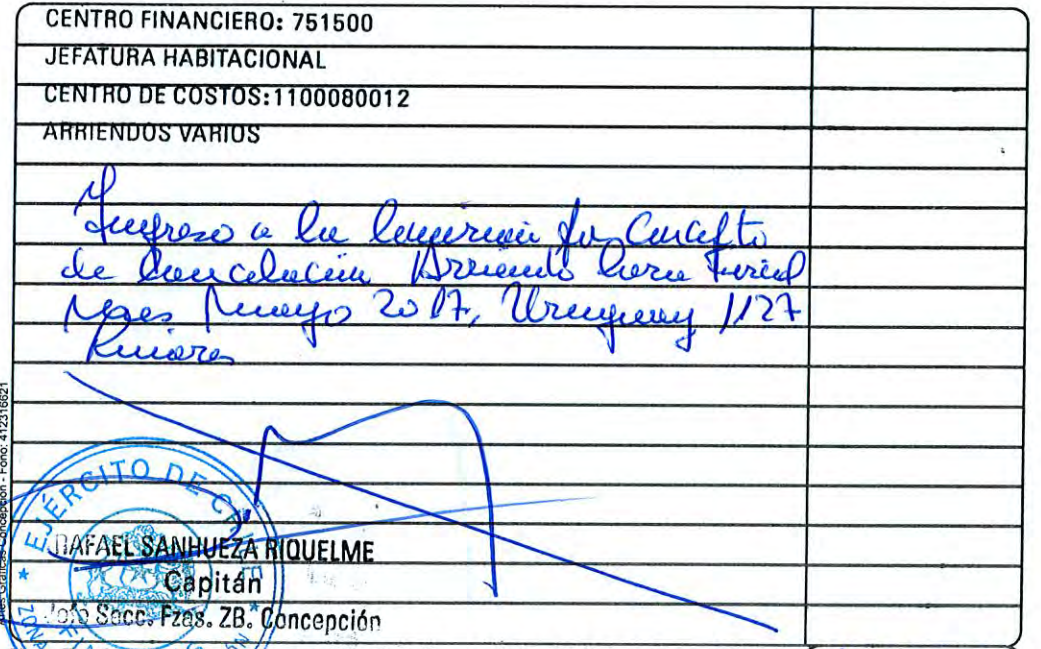 CENTRO FINANCIERO: 751500
JEFATURA HABITACIONAL
CENTRO DE COSTOS:1100080012
ARRIENDOS VARIOS
Ingreso a la
de Cancelación Arriendo Casa Fiscal
Mayo 2017, Uruguay 1127
Linares
EJÉRCITO DE CHILE
RAFAEL SANHUEZA RIQUELME
Capitán
Jefe Secc. Fzas. ZB. Concepción
Artes Gráficas Concepción - Fono: 412316621